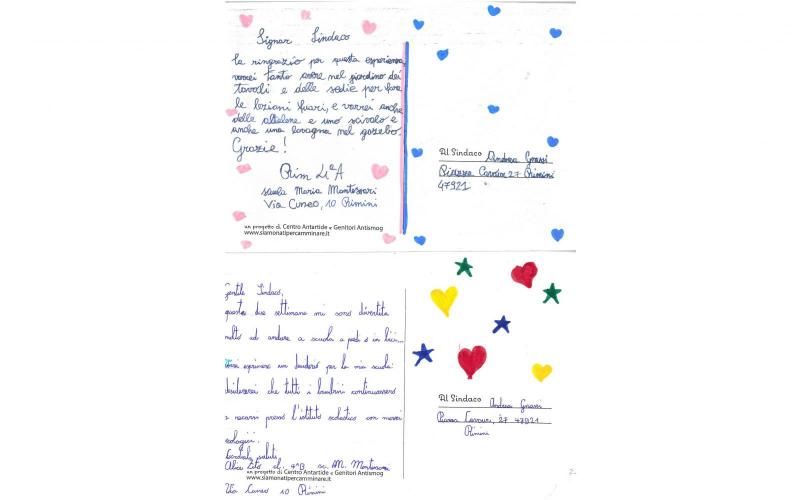 Signor Sindaco
la ringrazio per questa esperienza,
vorrei tanto avere nel giardino dei
tavoli e delle sedie per fare
le lezioni fuori, e vorrei anche
delle altalene e uno scivolo e
anche una lavagna nel gazebo.
Grazie!
4ªA
scuola Maria Montessori
Via Cuneo, 10 Rimini
un progetto di Centro Antartide e Genitori Antismog
www.siamonatipercamminare.it
Al Sindaco Andrea Gnassi
Piazza Cavour 27 Rimini
47921
Gentile Sindaco,
queste due settimane mi sono divertita
molto ad andare a scuola a piedi o in bici...
esprimere un desiderio per la mia scuola:
desidererei che tutti i bambini continuassero
a recarsi presso l'istituto scolastico con mezzi
ecologici.
Cordiali saluti,
cl. 4ªB sc. M. Montessori
un progetto di Centro Antartide e Genitori Antismog
www.siamonatipercamminare.it
Via Cuneo 10 Rimini
Al Sindaco Andrea Gnassi
Piazza Cavour, 27 47921
Rimini